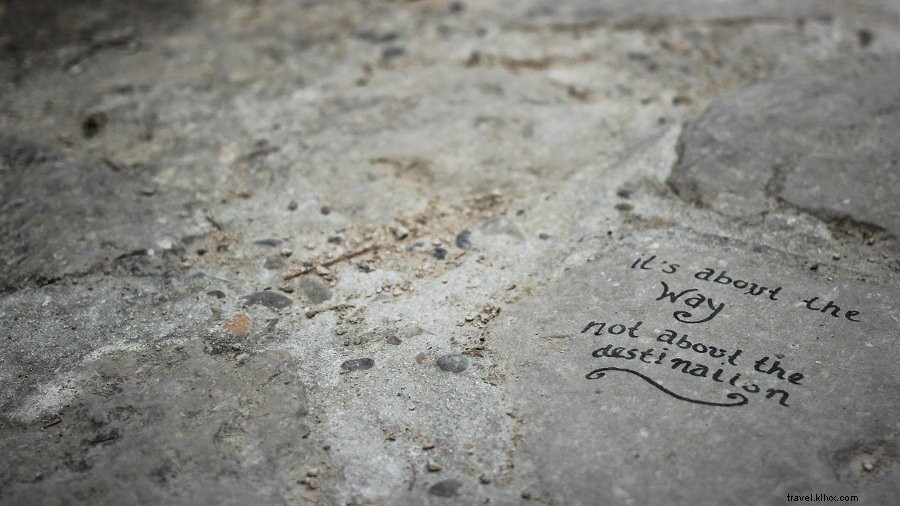 it's about the
Way
not about the
destination
travel.kllvx.com